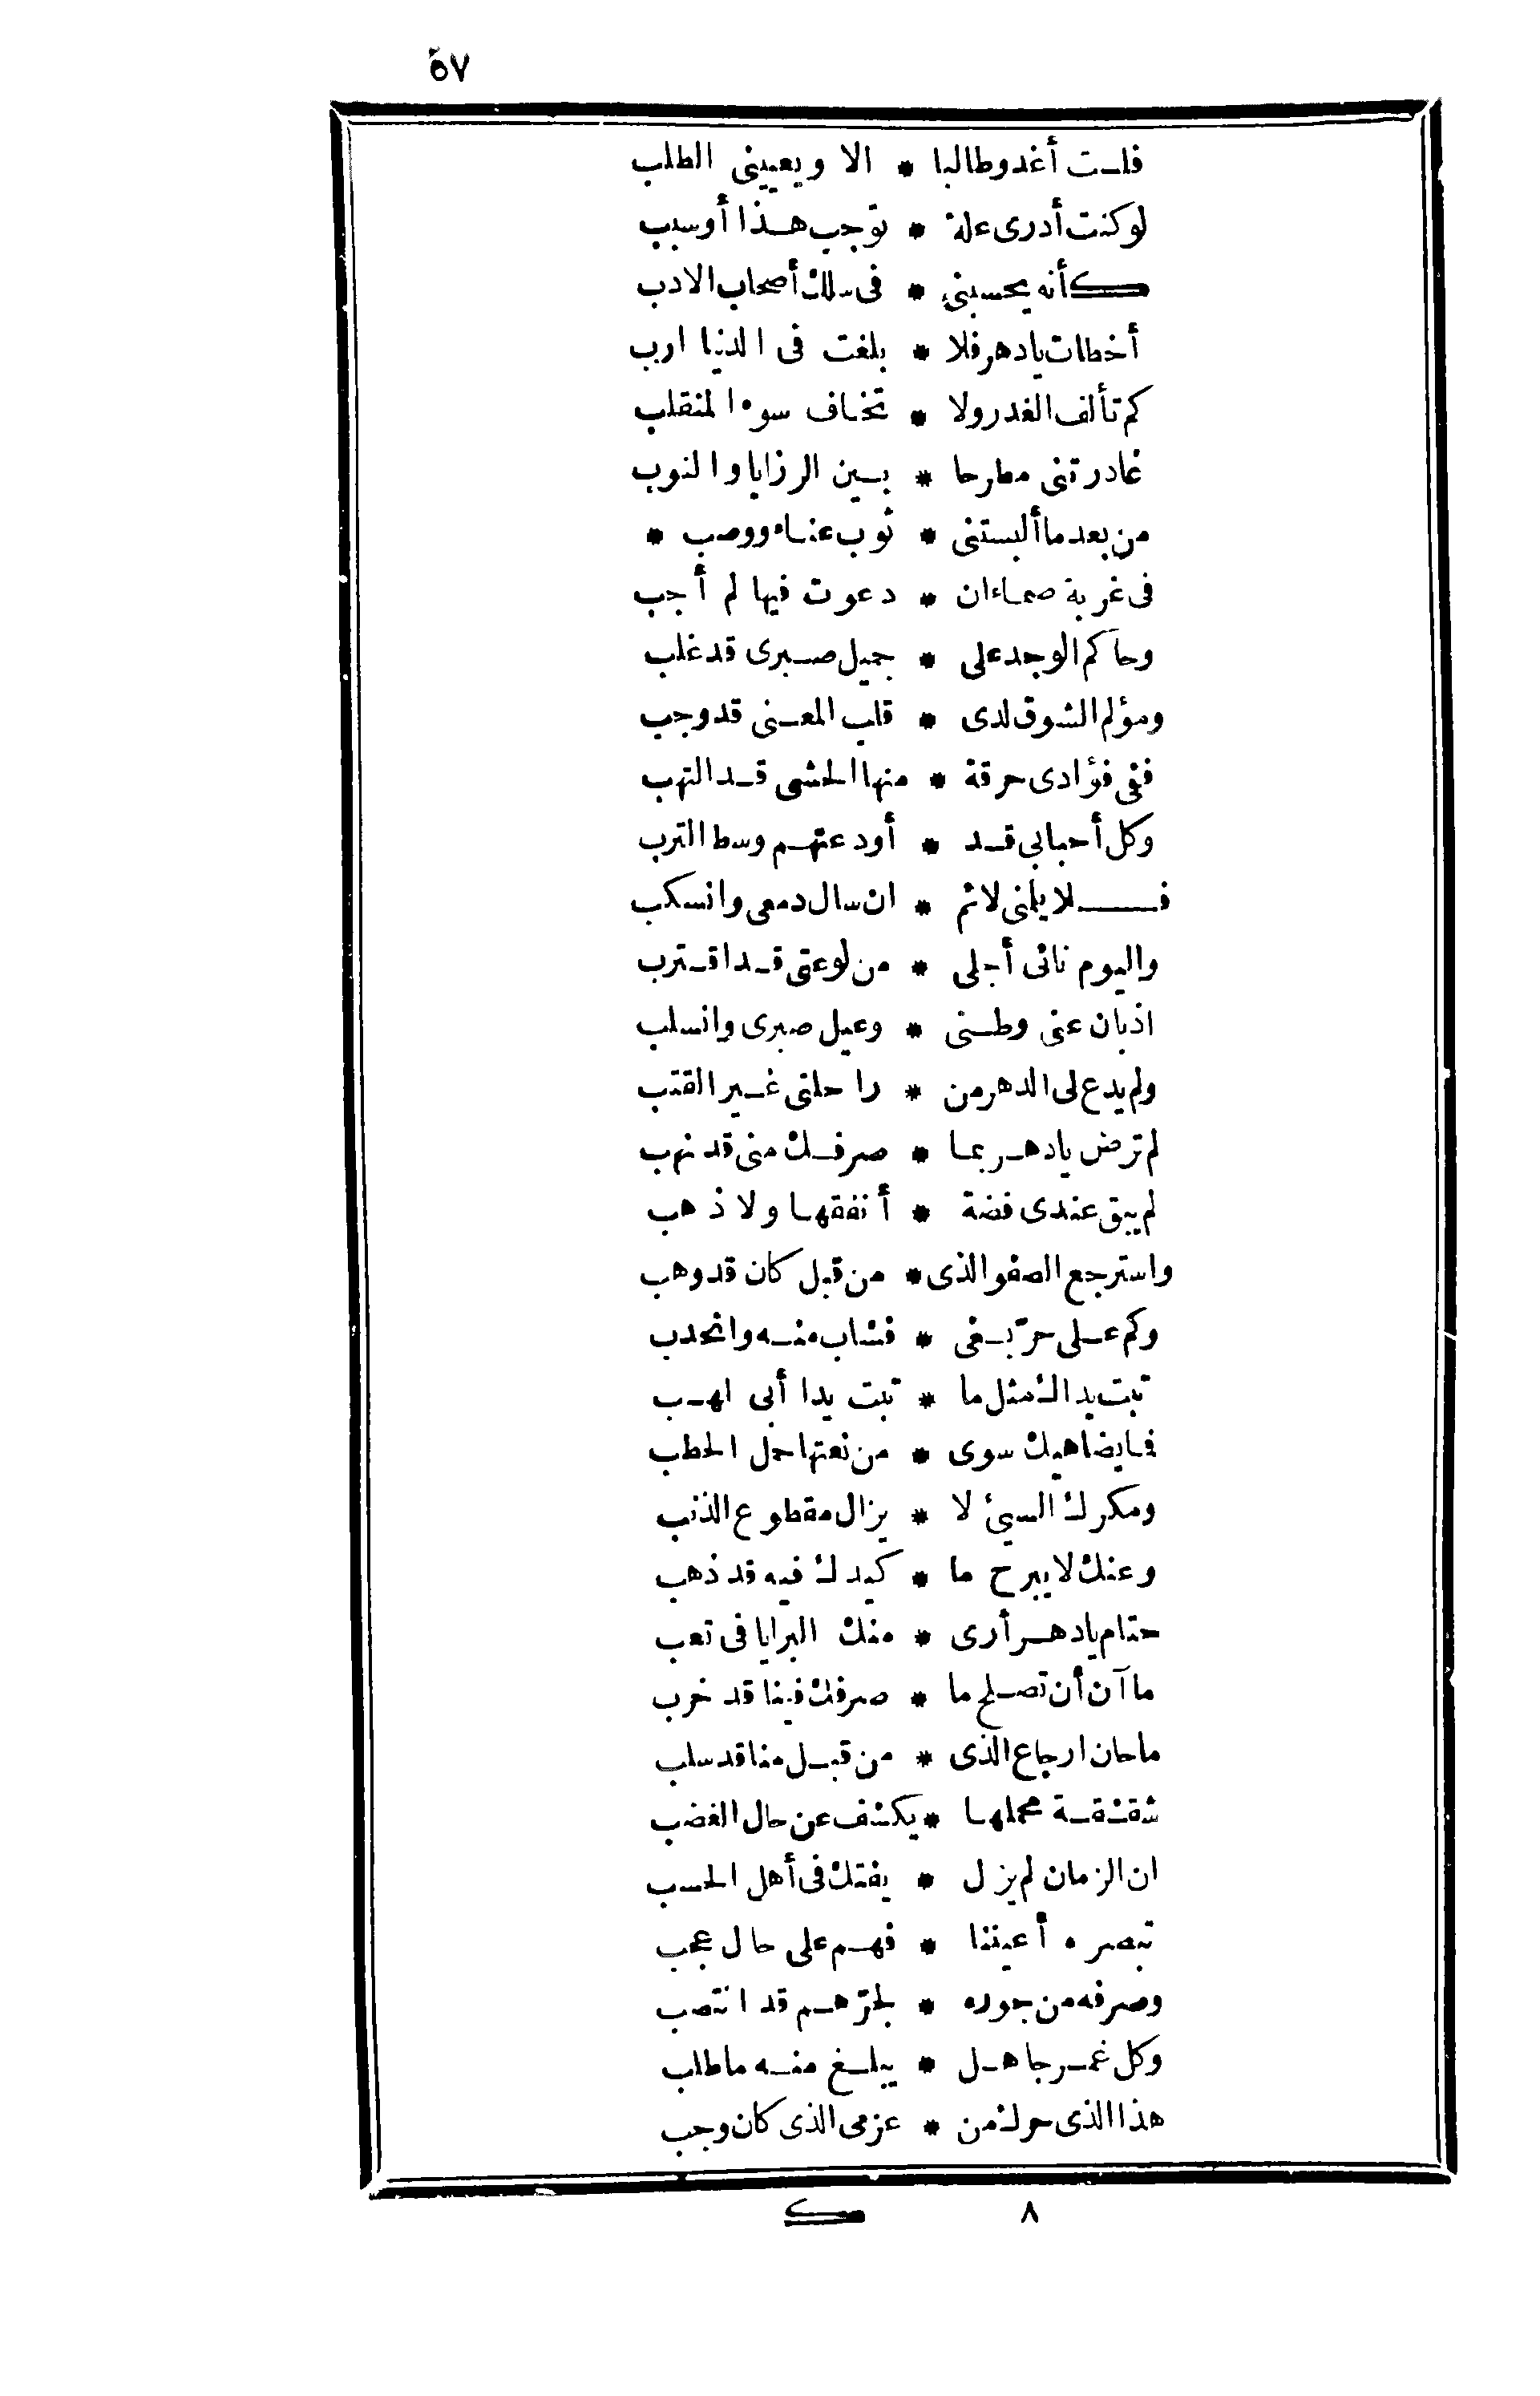 ٥٧
فلست أغدو طالبا * الا ويعييني الطلب
لو كنت أدرى علة * توجب هذا أوسبب
كأنه يحسبني * فى سلك أصحاب الادب
أخطات يادهر فلا * بلغت فى الدنيا ارب
كم تألف الغدر ولا * تخاف سوء المنقلب
غادرتنى مطرحا * بين الرزايا والنوب
من بعد ما ألبستنى * ثوب عناء ووصب *
فى غربة صماء ان * دعوت فيها لم أجب
وحاكم الوجد على * جميل صبرى قد غلب
ومؤلم الشوق لدى * قلب المعنى قد وجب
ففى فؤادى حرقة * منها الحشى قد التهب
وكل أحبابى قد * أودعتهم وسط الترب
فلا يلمنى لائم * ان سال دمعى وانسكب
واليوم نائى أجلى * من لوعتى قد اقترب
اذبان عنى وطنى * وعيل صبرى وانسلب
ولم يدع لى الدهر من * راحلتى غير القتب
لم ترض يادهر بما * صرفك منى قد نهب
لم يبق عندى فضة * أنفقها ولا ذهب
واسترجع الصفو الذى * من قبل كان قد وهب
وكم على حرّ بغى * فشاب منه وانحدب
تبت يداك مثل ما * تبت يدا أبى لهب
فما يضاهيك سوى * من نعتها حمل الحطب
ومكرك السيئ لا * يزال مقطوع الذنب
وعنك لا يبرح ما * كيدك فيه قد ذهب
حتام يادهر أرى * منك البرايا فى تعب
ما آن أن تصلح ما * صرفك فينا قد خرب
ماحان ارجاع الذى * من قبل منا قد سلب
شقشقة مجملها * يكشف عن حال الغضب
ان الزمان لم يزل * يفتك فى أهل الحسب
تبصره أعيننا * فهم على حال عجب
وصرفه من جوره * لحرّهم قد انتصب
وكل غمر جاهل * يبلغ منه ماطلب
هذا الذى حرك من * عزمى الذى كان وجب
٨ ك